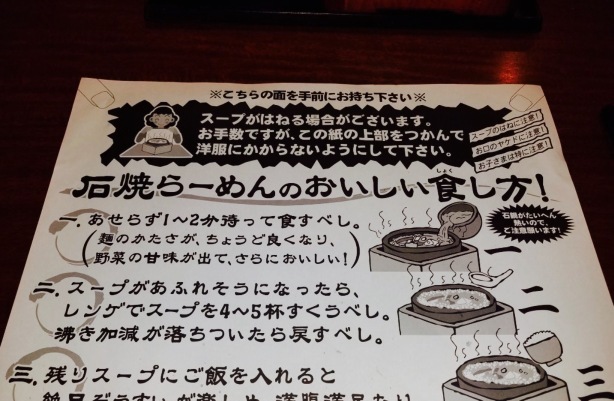 ※こちらの面を手前にお持ち下さい※
スープがはねる場合がございます。
お手数ですが、この紙の上部をつかんで
洋服にかからないようにして下さい。
スープのはねに注意!
お口のヤケドに注意!
お子さまは特に注意!
石焼らーめんのおいしい食し方!
しょく
一.あせらず1〜2分待って食すべし。
(麺のかたさが、ちょうど良くなり、
野菜の甘味が出て、さらにおいしい!)
石鍋がたいへん
熱いので、
ご注意願います!
一
二.スープがあふれそうになったら、
レンゲでスープを4〜5杯すくうべし。
沸き加減が落ちついたら戻すべし。
二
三.残りスープにご飯を入れると
三